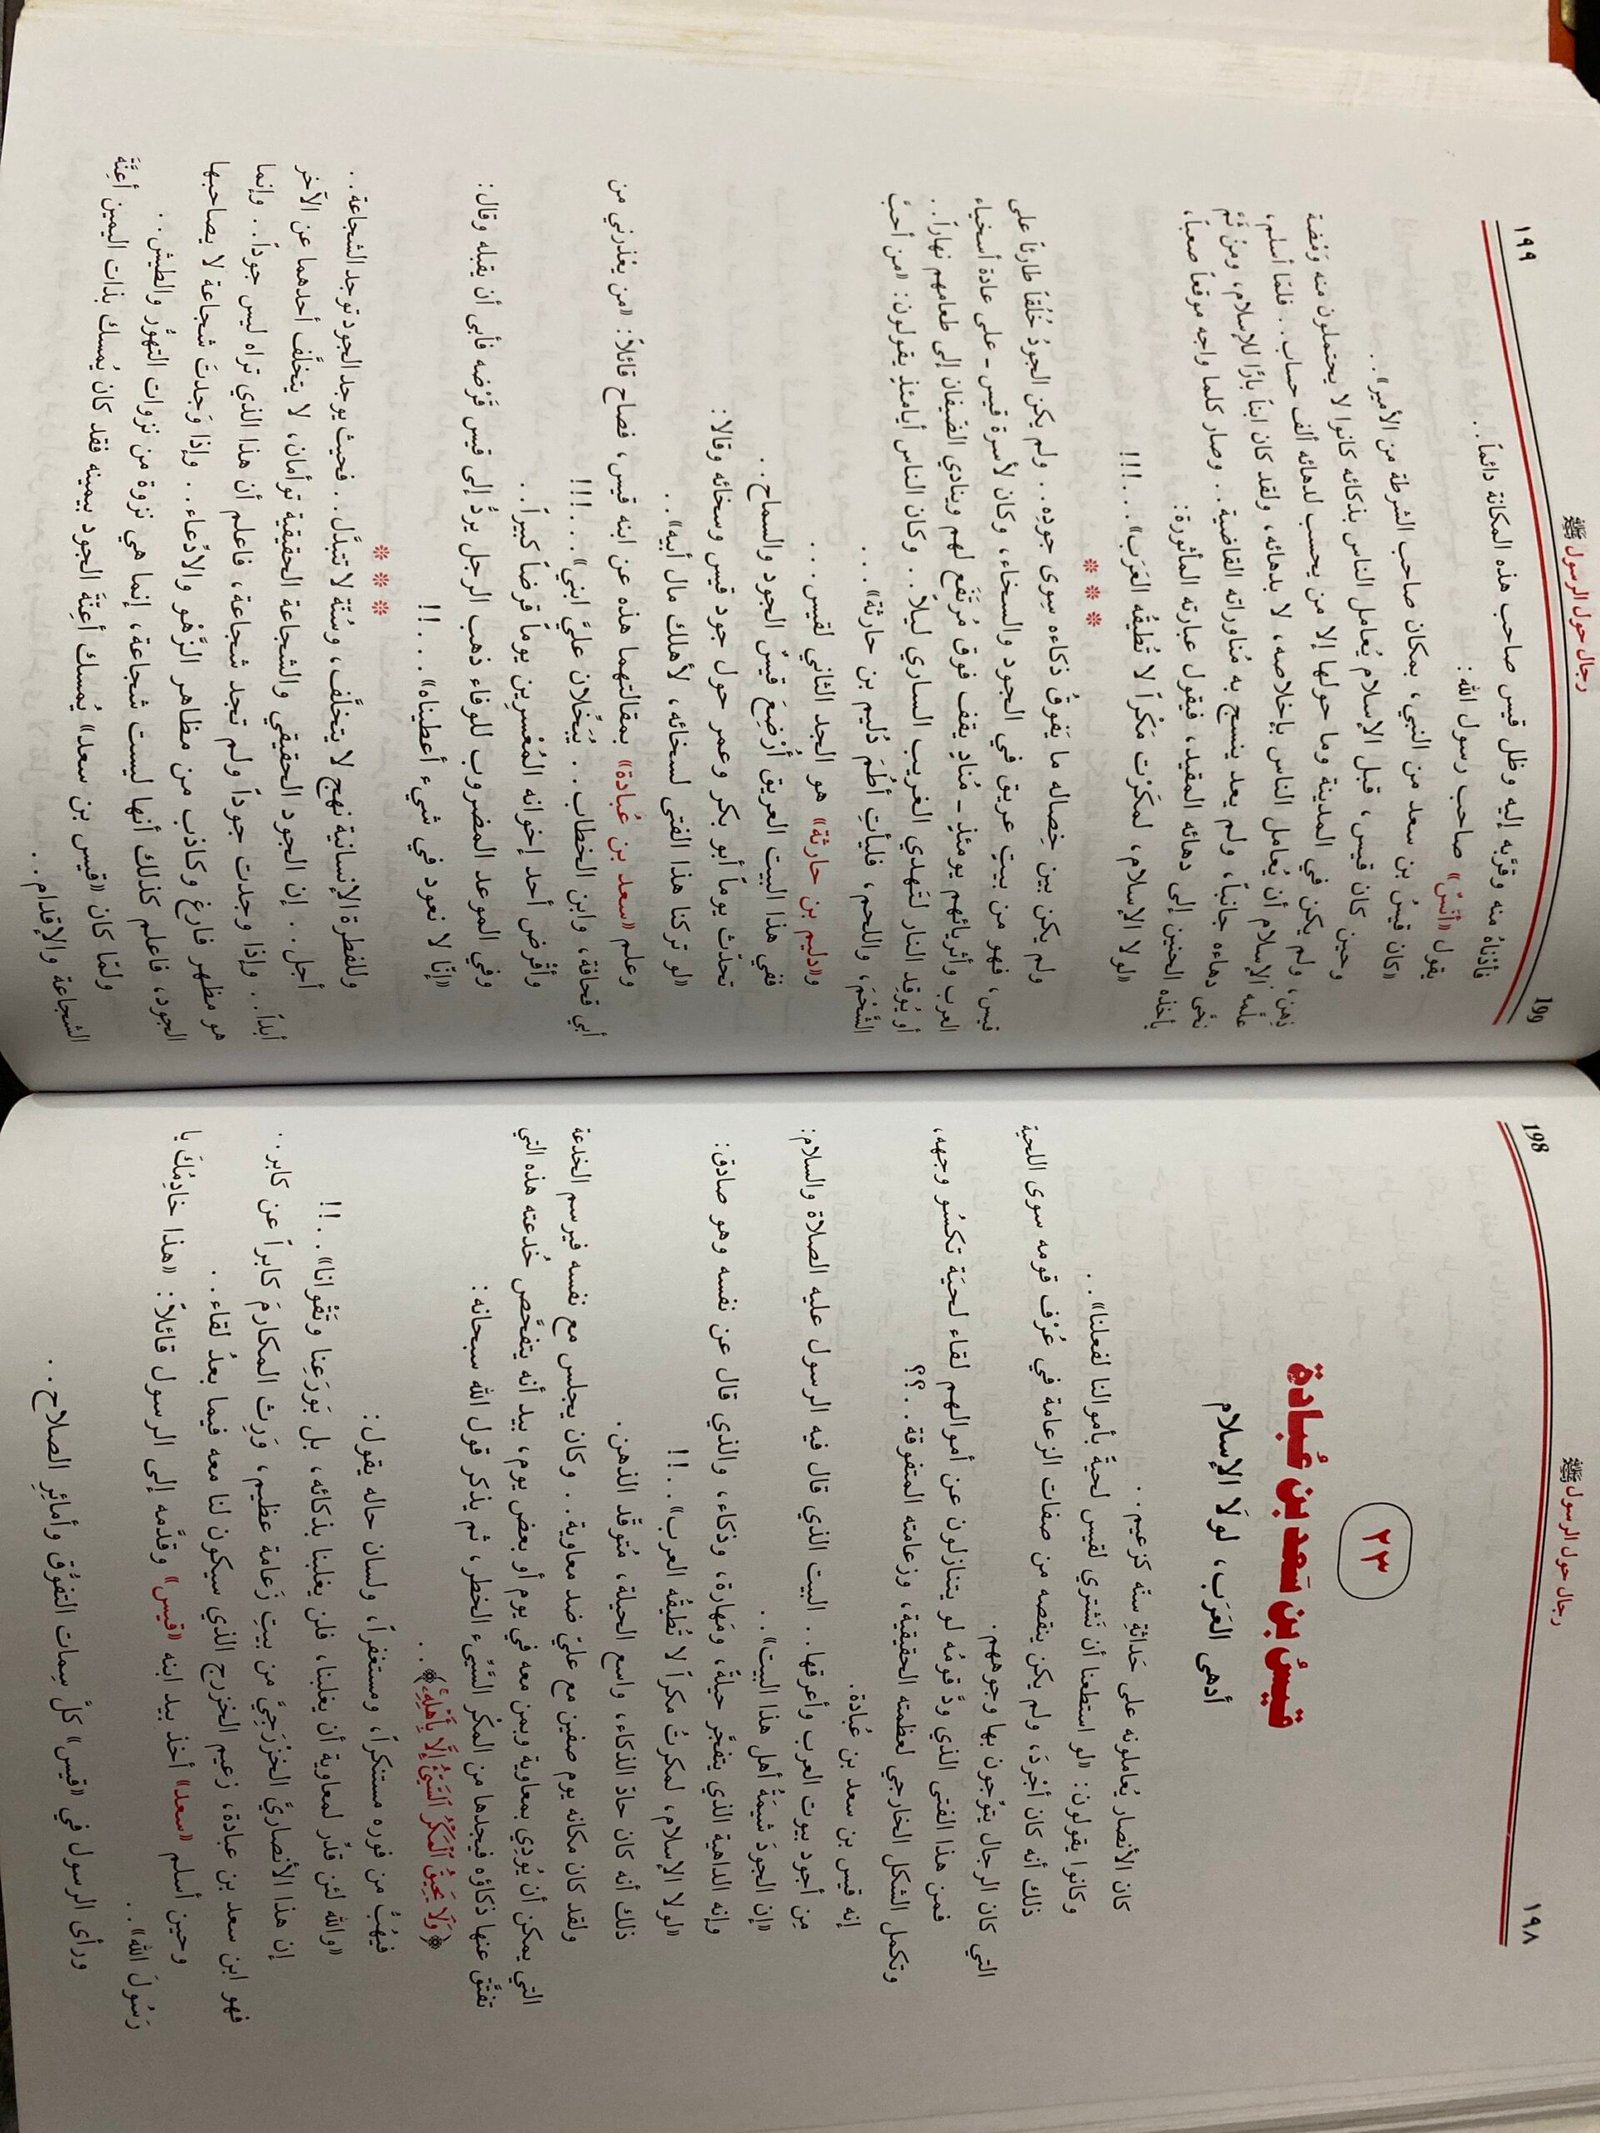 ١٩٨
رجال حول الرسول ﷺ
198
٢٣
قيسُ بن سَعد بن عُبادة
أدهى العَرَب، لولَا الإسلام
كان الأنصار يُعاملونه على حَداثةِ سنّه كزعيم. .
وكانوا يقولون: «لو استطعنا أن نَشْتري لقيس لحيةً بأموالنا لفعلنا». .
ذلك أنه كان أجْردَ، ولم يكن ينقصه من صفات الزعامة في عُرْف قومه سوى اللحية
التي كان الرجال يتوّجون بها وجوههم.
فمن هذا الفتى الذي ودَّ قومُه لو يتنازلون عن أموالهم لقاء لحيَة تكسُو وجهه،
وتكمل الشكل الخارجي لعظمته الحقيقية، وزعامته المتفوقة. .؟؟
إنه قيس بن سعد بن عُبادة.
مِن أجود بيوت العرب وأعرقها. . البيت الذي قال فيه الرسول عليه الصلاة والسلام:
«إن الجودَ شيمَةُ أهل هذا البيت». .
وإنه الداهية الذي يتفجَّر حيلةً، ومَهارة، وذكاء، والذي قال عن نفسه وهو صادق:
«لولا الإسلام، لمكرتُ مكراً لا تُطيقُه العرب». .!!
ذلك أنه كان حادّ الذكاء، واسع الحيلة، مُتوقّد الذهن.
ولقد كان مكانه يوم صفين مع عليّ ضد معاوية. . وكان يجلس مع نفسه فيرسم الخدعة
التي يمكن أن يُودِي بمعاوية وبمن معه في يوم أو بعض يوم، بيد أنه يتفحَّص خُدعته هذه التي
تفتَّق عنها ذكاؤه فيجدها من المكْر السَّيِّء الخطر، ثم يذكر قول الله سبحانه:
﴿وَلَا يَحِيقُ الْمَكْرُ السَّيِّئُ إِلَّا بِأَهْلِهِ﴾. .
فيهُبُّ من فوره مستنكراً، ومستغفراً، ولسان حاله يقول:
«والله لئن قدِّر لمعاوية أن يغلبنا، فلن يغلبنا بذكائه، بل بَورَعِنا وتَقْوانا». .!!
إن هذا الأنصاريَّ الخَزْرَجيَّ من بيتِ زَعامة عظيم، وَرِث المكارِمَ كابراً عن كابر. .
فهو ابن سعد بن عبادة، زعيم الخزرج الذي سيكون لنا معه فيما بعدُ لقاء. .
وحين أسلم «سعد» أخذ بيد ابنه «قيس» وقدَّمه إلى الرسول قائلاً: «هذا خادِمُكَ يا
رَسُولَ الله». .
ورأى الرسول في «قيس» كلَّ سِمات التفوُّق وأمائِرِ الصلاح. .
رجال حول الرسول ﷺ
١٩٩
199
فأدْناهُ منه وقرَّبه إليه وظل قيس صاحب هذه المكانة دائماً. .
يقول «أنَسٌ» صاحب رسول الله:
«كان قيسُ بن سعد من النبي، بمكان صاحب الشرطة من الأمير». .
وحين كان قيس، قبل الإسلام يُعامل الناس بذكائه كانوا لا يحتملون منه وَمْضة
ذِهن، ولم يكن في المدينة وما حولها إلا من يحسب لدهائه ألف حساب. . فلمّا أسلم،
علَّمه الإسلام أن يُعامل الناس بإخلاصه، لا بدهائه، ولقد كان ابناً بارًّا للإسلام، ومن ثَمَّ
نحَّى دهاءه جانباً، ولم يعد ينسج به مُناوراته القاضية. . وصار كلما واجه موقعاً صعباً،
يأخذه الحنين إلى دهائه المقيد، فيقول عبارته المأثورة:
«لولا الإسلام، لمكَرْت مَكْراً لا تُطيقُه العَرَب». . .!!!
* * *
ولم يكن بين خِصاله ما يَفوقُ ذكاءه سِوى جودِه. . ولم يكن الجودُ خُلُقاً طارئاً على
قيس، فهو من بيتِ عريق في الجود والسخاء، وكان لأسرة قيس - على عادة أسخياء
العرب وأثريائهم يومئذِ - مُنادٍ يقف فوق مُرتَفَع لهم وينادي الضِّيفان إلى طعامهم نهاراً. .
أو يُوقد النار لتَهدي الغريب الساري ليلاً. . وكان الناس أيامئذٍ يقولون: «من أحبَّ
الشَّحْمَ، واللحم، فليأتِ أُطُمَ دُليم بن حارثة». . .
و«دليم بن حارثة» هو الجد الثاني لقيس. . .
ففي هذا البيت العريق أُرْضِعَ قيسٌ الجود والسماح. .
تحدَّث يوماً أبو بكر وعمر حول جود قيس وسخائه وقالا:
«لو تركنا هذا الفتى لسخائه، لأهلك مال أبيه». .
وعلم «سعد بن عُبادة» بمقالتهما هذه عن ابنه قيس، فصاح قائلاً: «من يعْذرني من
أبي قحافة، وابن الخطاب. . يُبَخِّلان عليَّ ابني». . .!!!
وأقْرض أحد إخوانه المُعْسرِين يوماً قرضاً كبيراً. .
وفي الموعد المضروب للوفاء ذهب الرجل يردُّ إلى قيس قَرْضه فأبى أن يقبله وقال:
«إنّا لا نعود في شيء أعطيناه». . . .!!
* * *
وللفطرة الإنسانية نهج لا يتخلَّف، وسُنّة لا تتبدَّل. . فحيث يوجد الجود توجد الشجاعة. .
أجل. . إن الجود الحقيقي والشجاعة الحقيقية توأمان، لا يتخلَّف أحدهما عن الآخر
أبداً. . وإذا وجدت جوداً ولم تجد شجاعة، فاعلم أن هذا الذي تراه ليس جوداً. . وإنما
هو مظهر فارغ وكاذب من مظاهر الزَّهْو والادِّعاء. . وإذا وَجدتَ شجاعة لا يصاحبها
الجود، فاعلم كذلك أنها ليست شجاعة، إنما هي نزوة من نزوات التهوُّر والطيش. .
ولمّا كان «قيس بن سعد» يُمسك أعِنّةَ الجود بيمينه فقد كان يُمسك بذات اليمين أعِنَّةَ
الشجاعة والإقدام. .